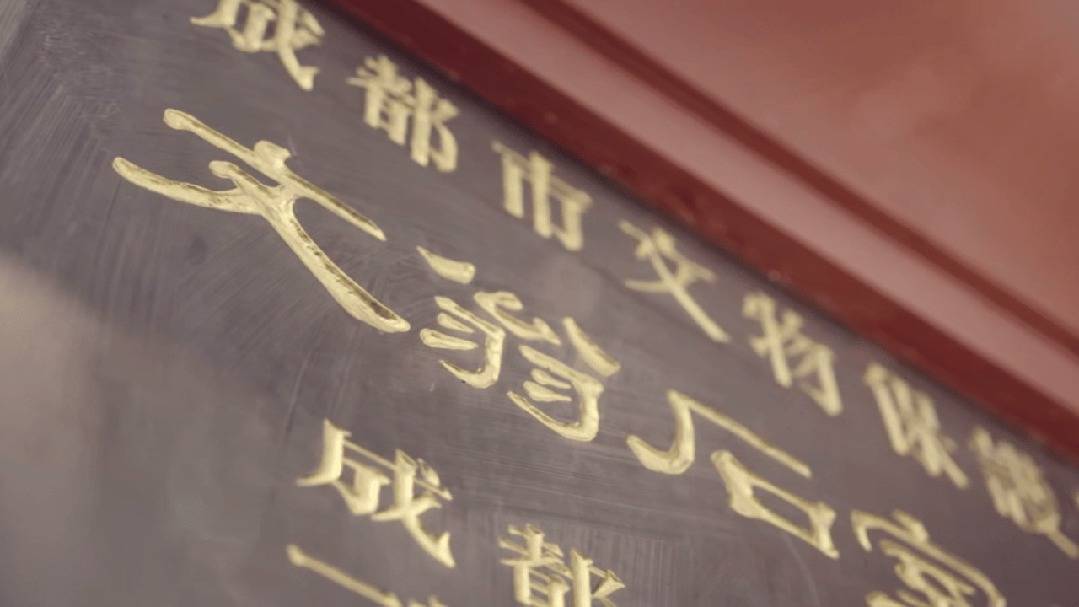 成都市文物保護
文翁石室
成都
一